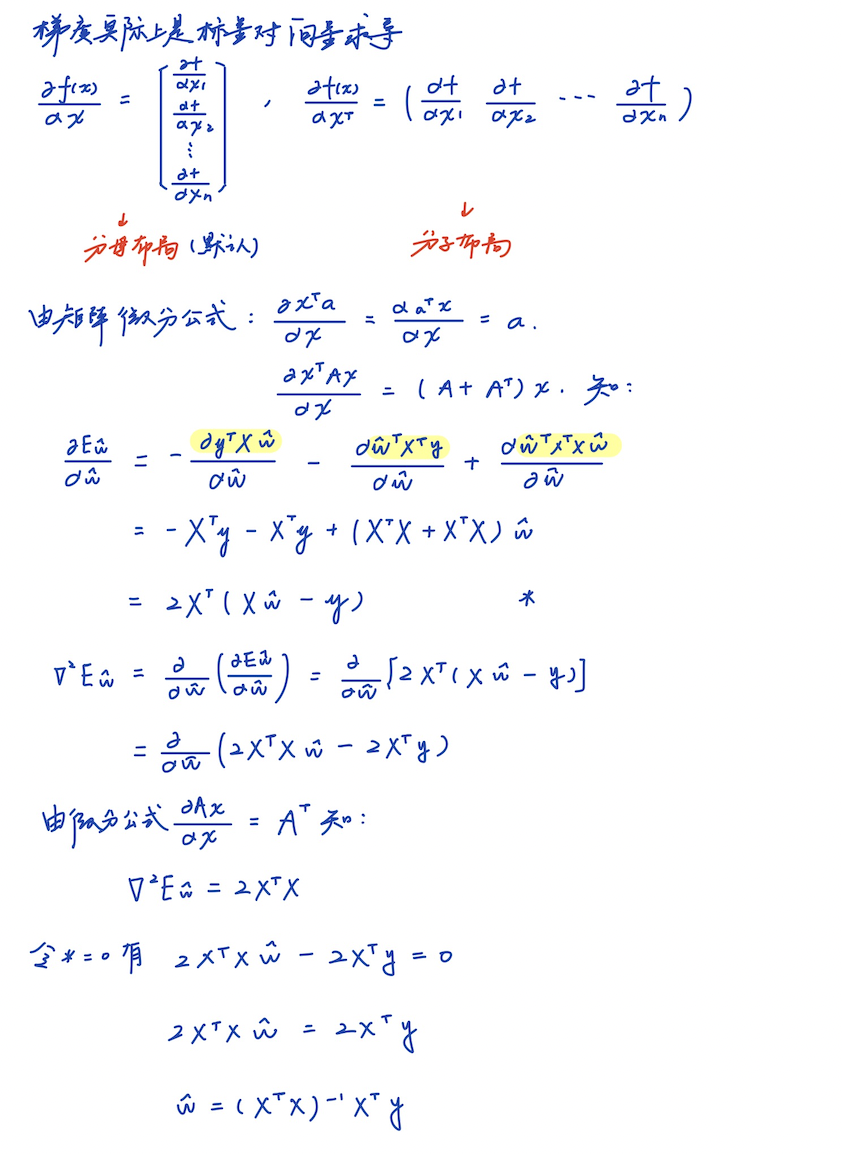 梯度实际上是标量对向量求导
∂f(x)/∂x = [∂f/∂x₁ ∂f/∂x₂ ⋮ ∂f/∂xₙ] , ∂f(x)/∂xᵀ = (∂f/∂x₁ ∂f/∂x₂ ⋯ ∂f/∂xₙ)
↓ ↓
分母布局(默认) 分子布局
由矩阵微分公式: ∂xᵀa/∂x = ∂aᵀx/∂x = a.
∂xᵀAx/∂x = (A + Aᵀ)x. 知:
∂Eŵ/∂ŵ = - ∂yᵀXŵ/∂ŵ - ∂ŵᵀXᵀy/∂ŵ + ∂ŵᵀXᵀXŵ/∂ŵ
= - Xᵀy - Xᵀy + (XᵀX + XᵀX)ŵ
= 2Xᵀ(Xŵ - y) *
∇²Eŵ = ∂/∂ŵ (∂Eŵ/∂ŵ) = ∂/∂ŵ [2Xᵀ(Xŵ - y)]
= ∂/∂ŵ (2XᵀXŵ - 2Xᵀy)
由微分公式 ∂Ax/∂x = Aᵀ 知:
∇²Eŵ = 2XᵀX
令*=0有 2XᵀXŵ - 2Xᵀy = 0
2XᵀXŵ = 2Xᵀy
ŵ = (XᵀX)⁻¹Xᵀy